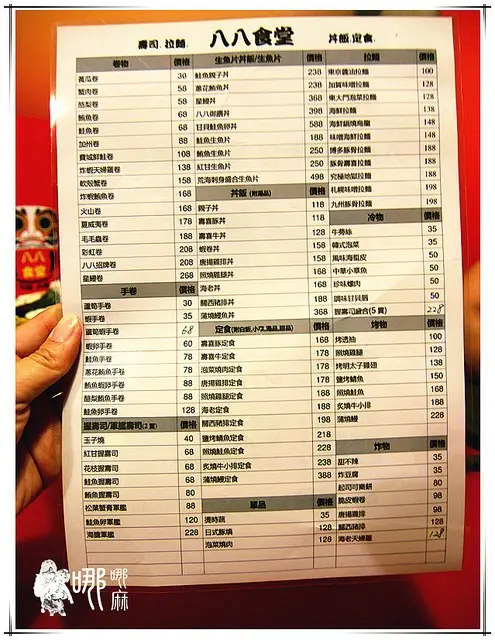 壽司.拉麵. 八八食堂 丼飯.定食.
卷物 價格
黃瓜卷 30
蟹肉卷 58
酪梨卷 58
鮪魚卷 68
鮭魚卷 68
加州卷 88
費城鮮鮭卷 108
炸蝦天婦羅卷 138
軟殼蟹卷 158
炸蝦鮪魚卷 168
火山卷 168
夏威夷卷 178
毛毛蟲卷 188
彩虹卷 208
八八招牌卷 208
星鰻卷 268
手卷 價格
蘆筍手卷 30
蝦手卷 35
蘆筍蝦手卷 68
蝦卵手卷 60
鮭魚手卷 78
蔥花鮪魚手卷 78
鮪魚蝦卵手卷 88
酪梨鮪魚手卷 88
鮭魚卵手卷 128
握壽司/軍艦壽司(2貫) 價格
玉子燒 40
紅甘握壽司 68
花枝握壽司 68
鮭魚握壽司 80
鮪魚握壽司 80
松葉蟹膏軍艦 88
鮭魚卵軍艦 120
海膽軍艦 228
生魚片丼飯/生魚片 價格
鮭魚親子丼 238
蔥花鮪魚丼 238
星鰻丼 368
八八御膳丼 398
甘貝鮭魚卵丼 588
鮭魚生魚片 188
鮪魚生魚片 250
紅甘生魚片 250
荒海刺身盛合生魚片 498
丼飯(附湯品) 價格
親子丼 118
壽喜豚丼 118
壽喜牛丼 128
蝦卷丼 158
唐揚雞排丼 158
照燒雞腿丼 168
海老丼 168
關西豬排丼 188
蒲燒鰻魚丼 368
定食(附白飯,小菜,湯品,甜品) 價格
壽喜豚定食 168
壽喜牛定食 178
泡菜燒肉定食 178
唐揚雞排定食 188
照燒雞腿定食 188
海老定食 188
關西豬排定食 198
鹽烤鯖魚定食 218
照燒鮭魚定食 228
炙燒牛小排定食 238
蒲燒鰻定食 388
單品 價格
燙時蔬 35
日式豚燒 128
泡菜燒肉 128
拉麵 價格
東京醬油拉麵 100
加賀味噌拉麵 128
東大門泡菜拉麵 128
海鮮拉麵 138
海鮮鍋燒烏龍 148
味噌海鮮拉麵 148
博多豚骨拉麵 188
豚骨壽喜拉麵 188
究極地獄拉麵 188
札幌味噌拉麵 198
九州豚骨拉麵 198
冷物 價格
牛蒡絲 35
韓式泡菜 35
風味海蜇皮 50
中華小章魚 50
珍味螺肉 50
調味甘貝唇 50
握壽司綜合(5貫) 228
烤物 價格
烤透抽 100
照燒雞腿 128
烤明太子雞翅 138
鹽烤鯖魚 150
照燒鮭魚 168
炙燒牛小排 188
蒲燒鰻 228
炸物 價格
甜不辣 35
炸豆腐 35
起司可樂餅 80
脆皮蝦卷 98
唐揚雞排 98
關西豬排 128
海老天婦羅 128
八八
食堂
哪哪麻